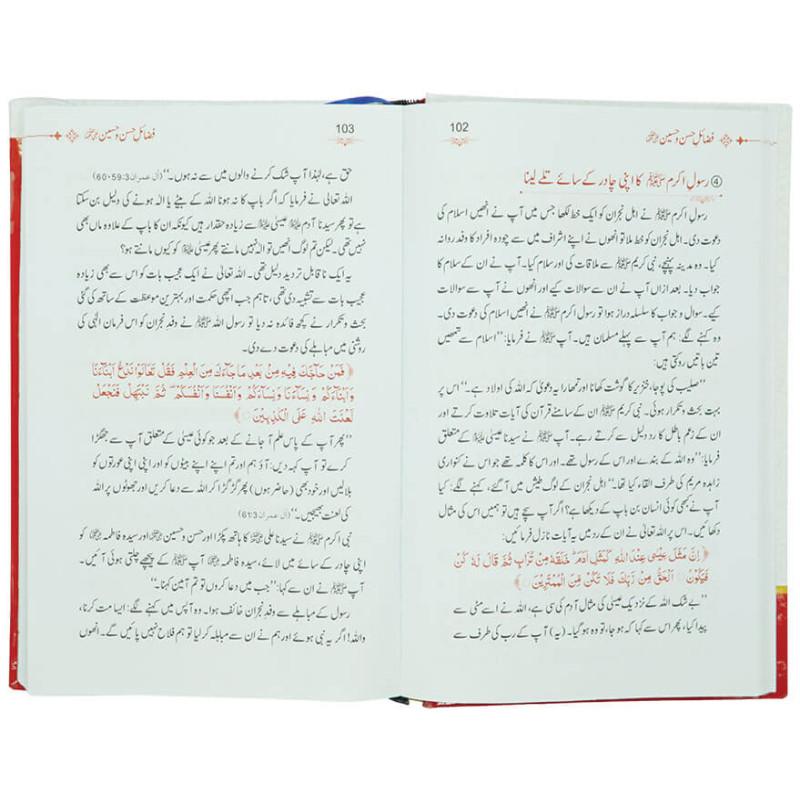 فضائلِ حسن و حسین رضی اللہ عنہما
102
④ رسولِ اکرم ﷺ کا اپنی چادر کے سائے تلے لینا
رسولِ اکرم ﷺ نے اہل نجران کو ایک خط لکھا جس میں آپ نے انھیں اسلام کی
دعوت دی۔ اہل نجران کو خط ملا تو انھوں نے اپنے اشراف میں سے چودہ افراد کا وفد روانہ
کیا۔ وہ مدینہ پہنچے، نبی کریم ﷺ سے ملاقات کی اور سلام کیا۔ آپ نے ان کے سلام کا
جواب دیا۔ بعد ازاں آپ نے ان سے سوالات کیے اور انھوں نے آپ سے سوالات
کیے۔ سوال و جواب کا سلسلہ دراز ہوا تو رسول اکرم ﷺ نے انھیں اسلام کی دعوت دی۔
وہ کہنے لگے: ہم آپ سے پہلے مسلمان ہیں۔ آپ ﷺ نے فرمایا: ”اسلام سے تمھیں
تین باتیں روکتی ہیں:
”صلیب کی پوجا، خنزیر کا گوشت کھانا اور تمھارا یہ دعویٰ کہ اللہ کی اولاد ہے۔“ اس پر
بہت بحث و تکرار ہوئی۔ نبی کریم ﷺ ان کے سامنے قرآن کی آیات تلاوت کرتے اور
ان کے زعم باطل کا رد دلیل سے کرتے رہے۔ آپ ﷺ نے سیدنا عیسیٰ علیہ السلام کے متعلق
فرمایا: ”وہ اللہ کے بندے اور اس کے رسول تھے۔ اور اس کا کلمہ تھے جو اس نے کنواری
زاہدہ مریم کی طرف القاء کیا تھا۔“ اہل نجران کے لوگ طیش میں آ گئے، کہنے لگے: کیا
آپ نے کبھی کوئی انسان بن باپ کے دیکھا ہے؟ اگر آپ سچے ہیں تو ہمیں اس کی مثال
دکھائیں۔ اس پر اللہ تعالیٰ نے ان کے رد میں یہ آیات نازل فرمائیں:
﴿ اِنَّ مَثَلَ عِيْسٰى عِنْدَ اللّٰهِ كَمَثَلِ اٰدَمَ ؕ خَلَقَهٗ مِنْ تُرَابٍ ثُمَّ قَالَ لَهٗ كُنْ
فَيَكُوْنُ ۞ اَلْحَقُّ مِنْ رَّبِّكَ فَلَا تَكُنْ مِّنَ الْمُمْتَرِيْنَ ۞ ﴾
”بے شک اللہ کے نزدیک عیسیٰ کی مثال آدم کی سی ہے، اللہ نے اسے مٹی سے
پیدا کیا، پھر اس سے کہا کہ ہو جا، تو وہ ہو گیا۔ (یہ) آپ کے رب کی طرف سے
فضائلِ حسن و حسین رضی اللہ عنہما
103
حق ہے، لہٰذا آپ شک کرنے والوں میں سے نہ ہوں۔“ (آل عمران 60،59:3)
اللہ تعالیٰ نے فرمایا کہ اگر باپ کا نہ ہونا اللہ کے بیٹے یا الٰہ ہونے کی دلیل بن سکتا
ہے تو پھر سیدنا آدم علیہ السلام عیسیٰ علیہ السلام سے زیادہ حقدار ہیں کیونکہ ان کا باپ کے علاوہ ماں بھی
نہیں تھی۔ لیکن تم لوگ انھیں تو الٰہ نہیں مانتے پھر عیسیٰ علیہ السلام کو کیوں مانتے ہو؟
یہ ایک نا قابل تردید دلیل تھی۔ اللہ تعالیٰ نے ایک عجیب بات کو اس سے بھی زیادہ
عجیب بات سے تشبیہ دی تھی، تاہم جب اچھی حکمت اور بہترین موعظت کے ساتھ کی گئی
بحث و تکرار نے کچھ فائدہ نہ دیا تو رسول اللہ ﷺ نے وفدِ نجران کو اس فرمان الٰہی کی
روشنی میں مباہلے کی دعوت دے دی۔
﴿ فَمَنْ حَآجَّكَ فِيْهِ مِنْۢ بَعْدِ مَا جَآءَكَ مِنَ الْعِلْمِ فَقُلْ تَعَالَوْا نَدْعُ اَبْنَآءَنَا
وَاَبْنَآءَكُمْ وَنِسَآءَنَا وَنِسَآءَكُمْ وَاَنْفُسَنَا وَاَنْفُسَكُمْ ثُمَّ نَبْتَهِلْ فَنَجْعَلْ
لَّعْنَتَ اللّٰهِ عَلَى الْكٰذِبِيْنَ ۞ ﴾
”پھر آپ کے پاس علم آ جانے کے بعد جو کوئی عیسیٰ کے متعلق آپ سے جھگڑا
کرے تو آپ کہہ دیں: آؤ ہم اور تم اپنے اپنے بیٹوں کو اور اپنی اپنی عورتوں کو
بلالیں اور خود بھی (حاضر ہوں) پھر گڑ گڑا کر اللہ سے دعا کریں اور جھوٹوں پر اللہ
کی لعنت بھیجیں۔“ (آل عمران 61:3)
نبی اکرم ﷺ نے سیدنا علی رضی اللہ عنہ کا ہاتھ پکڑا اور حسن و حسین رضی اللہ عنہما اور سیدہ فاطمہ رضی اللہ عنہا کو
اپنی چادر کے سائے میں لانے لائے، سیدہ فاطمہ رضی اللہ عنہا آپ ﷺ کے پیچھے چلتی ہوئی آئیں۔
آپ ﷺ نے ان سے کہا: ”جب میں دعا کروں تو تم آمین کہنا۔“
رسول کے مباہلے سے وفدِ نجران خائف ہوا۔ وہ آپس میں کہنے لگے: ایسا مت کرنا،
واللہ! اگر یہ نبی ہوئے اور ہم نے ان سے مباہلہ کر لیا تو ہم فلاح نہیں پائیں گے۔ انھوں